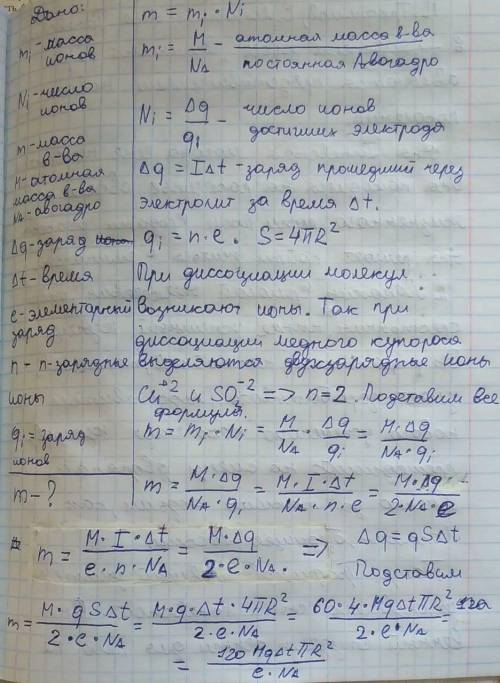 Дано:
mᵢ - масса ионов
Nᵢ - число ионов
m - масса в-ва
M - атомная масса в-ва
Nₐ - авогадро
Δq - заряд
Δt - время
e - элементарный заряд
n - n-зарядные ионы
qᵢ = заряд ионов
m - ?
m = mᵢ · Nᵢ
mᵢ = M/Nₐ - атомная масса в-ва / постоянная Авогадро
Nᵢ = Δq/qᵢ - число ионов достигших электрода
Δq = IΔt - заряд прошедший через
электролит за время Δt.
qᵢ = n·e. S = 4πR²
При диссоциации молекул
возникают ионы. Так при
диссоциации медного купороса
выделяются двухзарядные ионы
Cu⁺² и SO₄⁻² => n=2. Подставим все
формулы.
m = mᵢ · Nᵢ = M/Nₐ · Δq/qᵢ = M·Δq/Nₐ·qᵢ
m = M·Δq/Nₐ·qᵢ = M·I·Δt/Nₐ·n·e = M·Δq/2·Nₐ·e
m = M·I·Δt/e·n·Nₐ = M·Δq/2·e·Nₐ. => Δq = qSΔt
Подставим
m = M·qSΔt/2·e·Nₐ = M·q·Δt·4πR²/2·e·Nₐ = 60·4·MqΔtπR²/2·e·Nₐ =
= 120MqΔtπR²/e·Nₐ